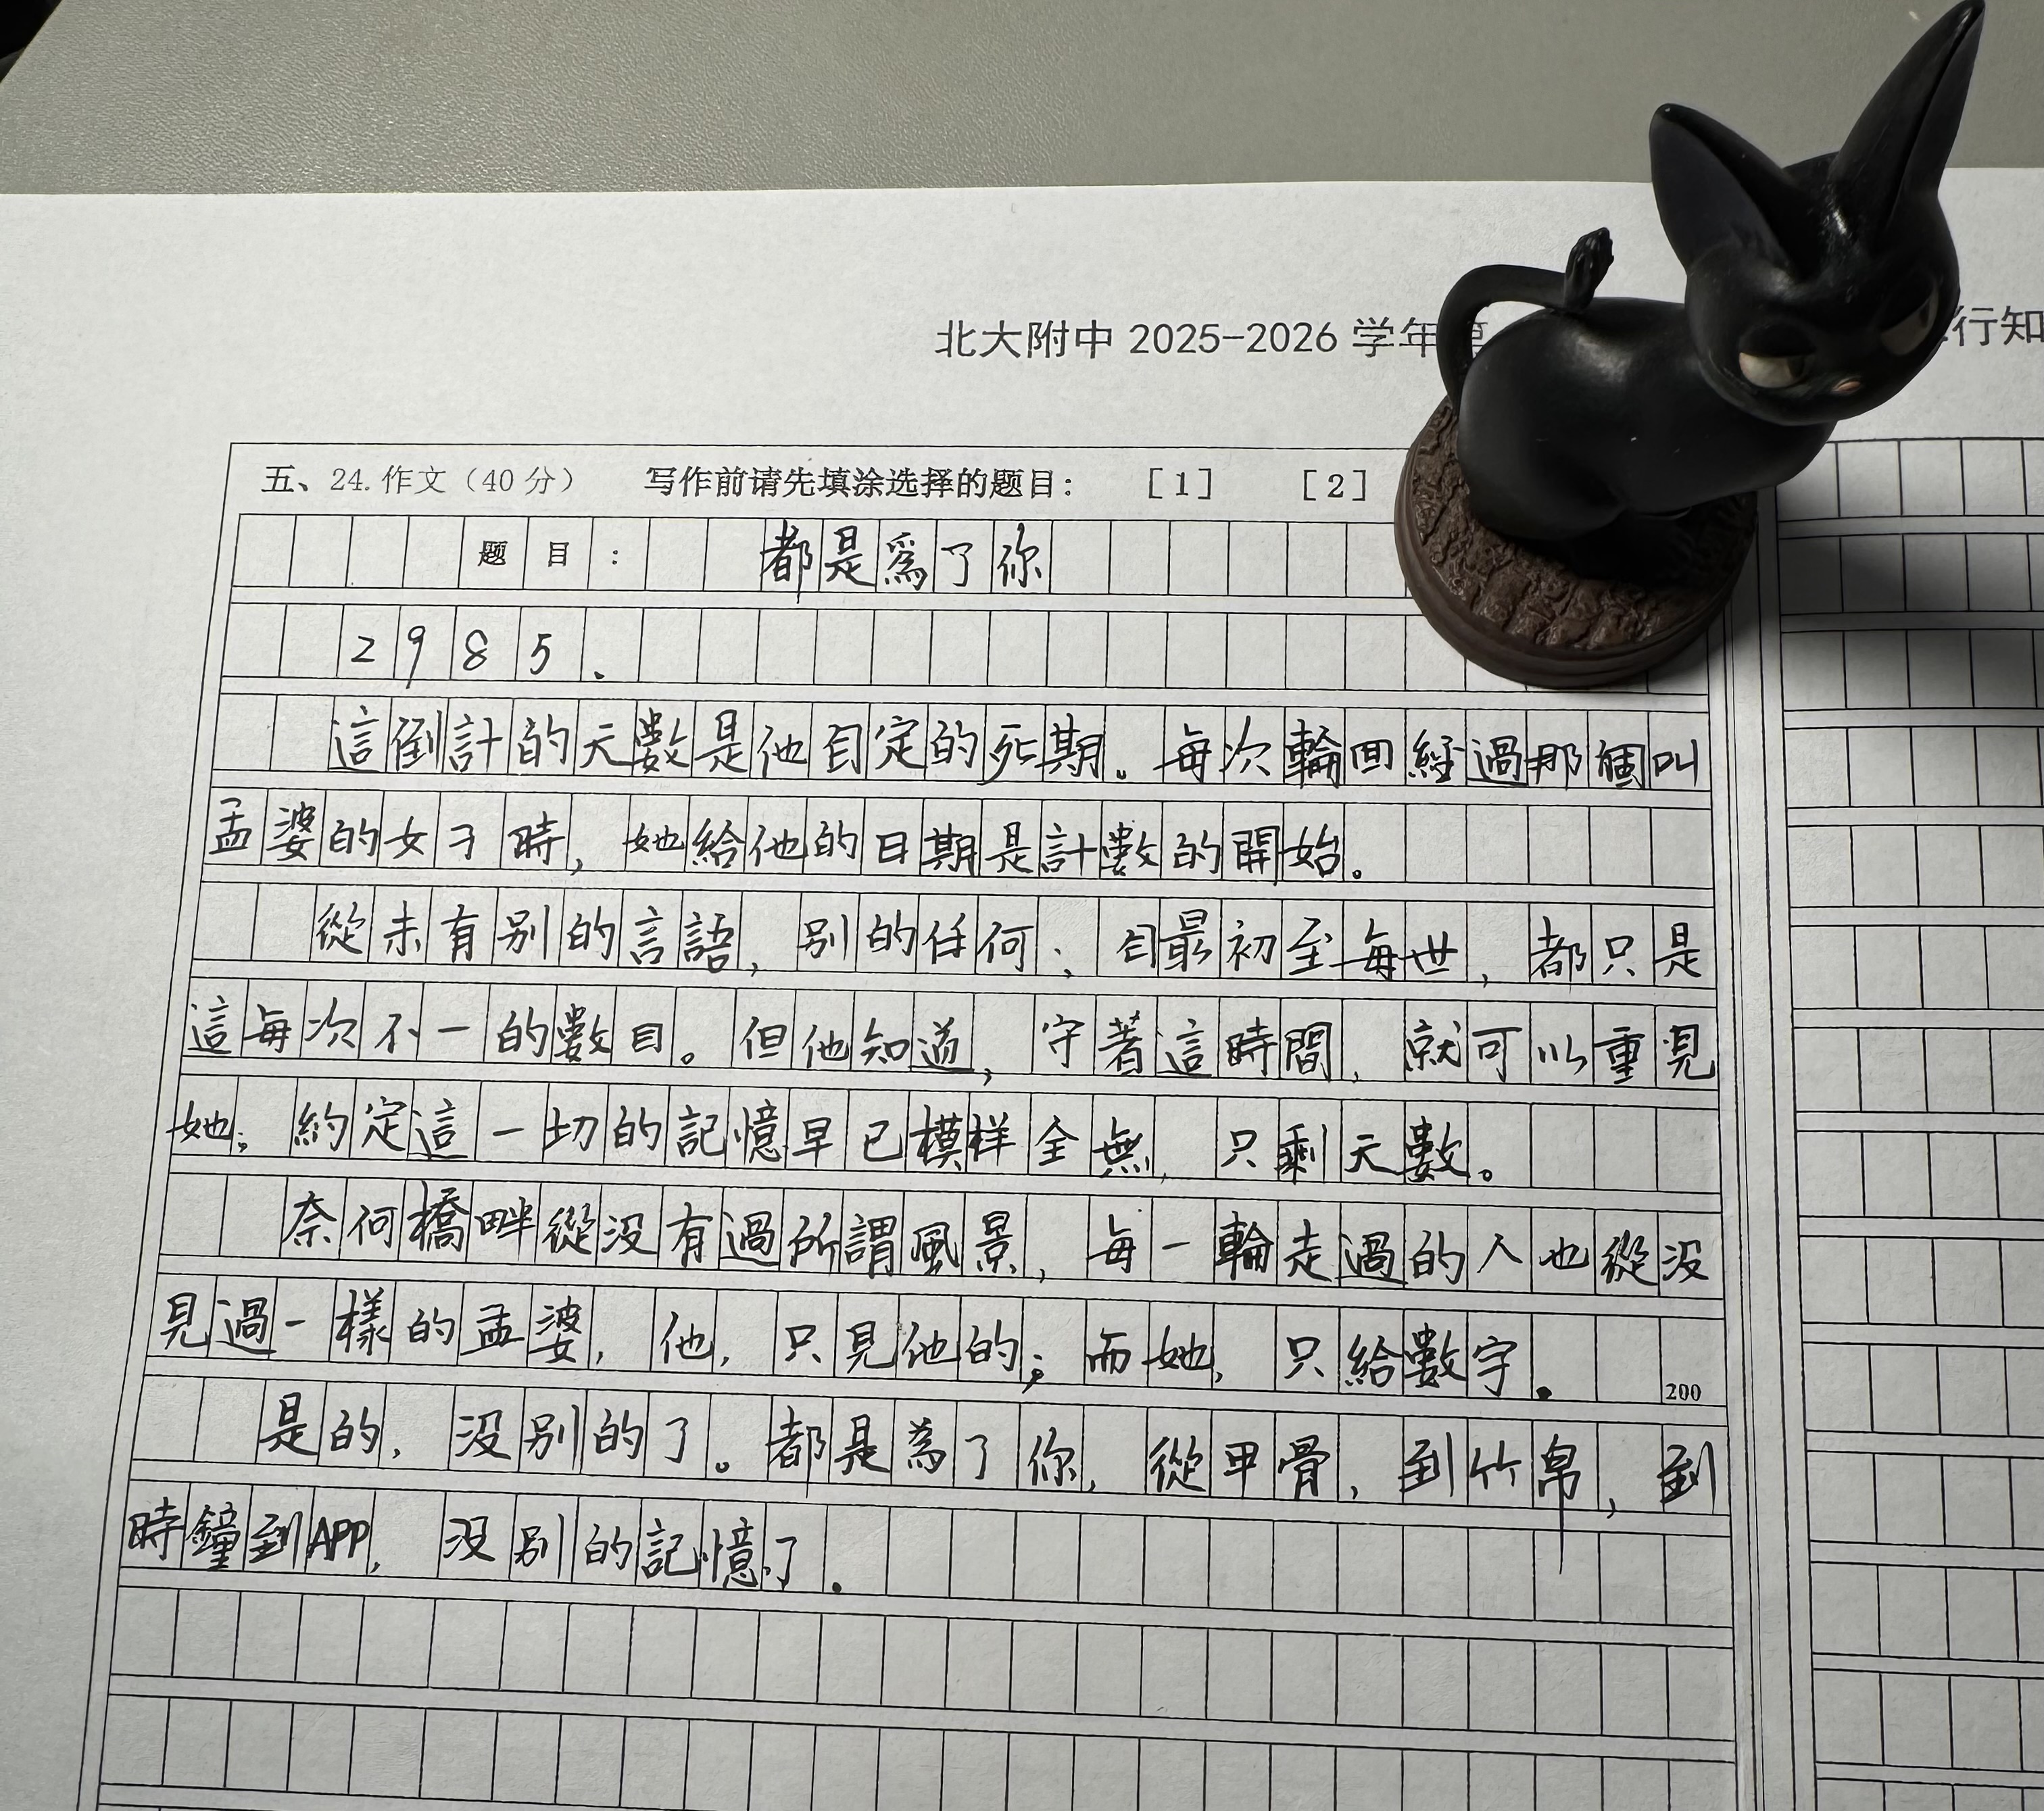 北大附中 2025-2026 学年 行知
五、24.作文（40 分） 写作前请先填涂选择的题目： [1] [2]
题目： 都是爲了你
2985.
這倒計的天數是他自定的死期。每次輪回經過那個叫
孟婆的女子時，她給他的日期是計數的開始。
從未有别的言語，别的任何；自最初至每世，都只是
這每次不一的數目。但他知道，守著這時間，就可以重見
她；約定這一切的記憶早已模样全無，只剩天數。
奈何橋畔從没有過所謂風景，每一輪走過的人也從没
見過一樣的孟婆，他，只見他的；而她，只給數字.
200
是的，没别的了。都是為了你，從甲骨，到竹帛，到
時鐘到APP，没别的記憶了.